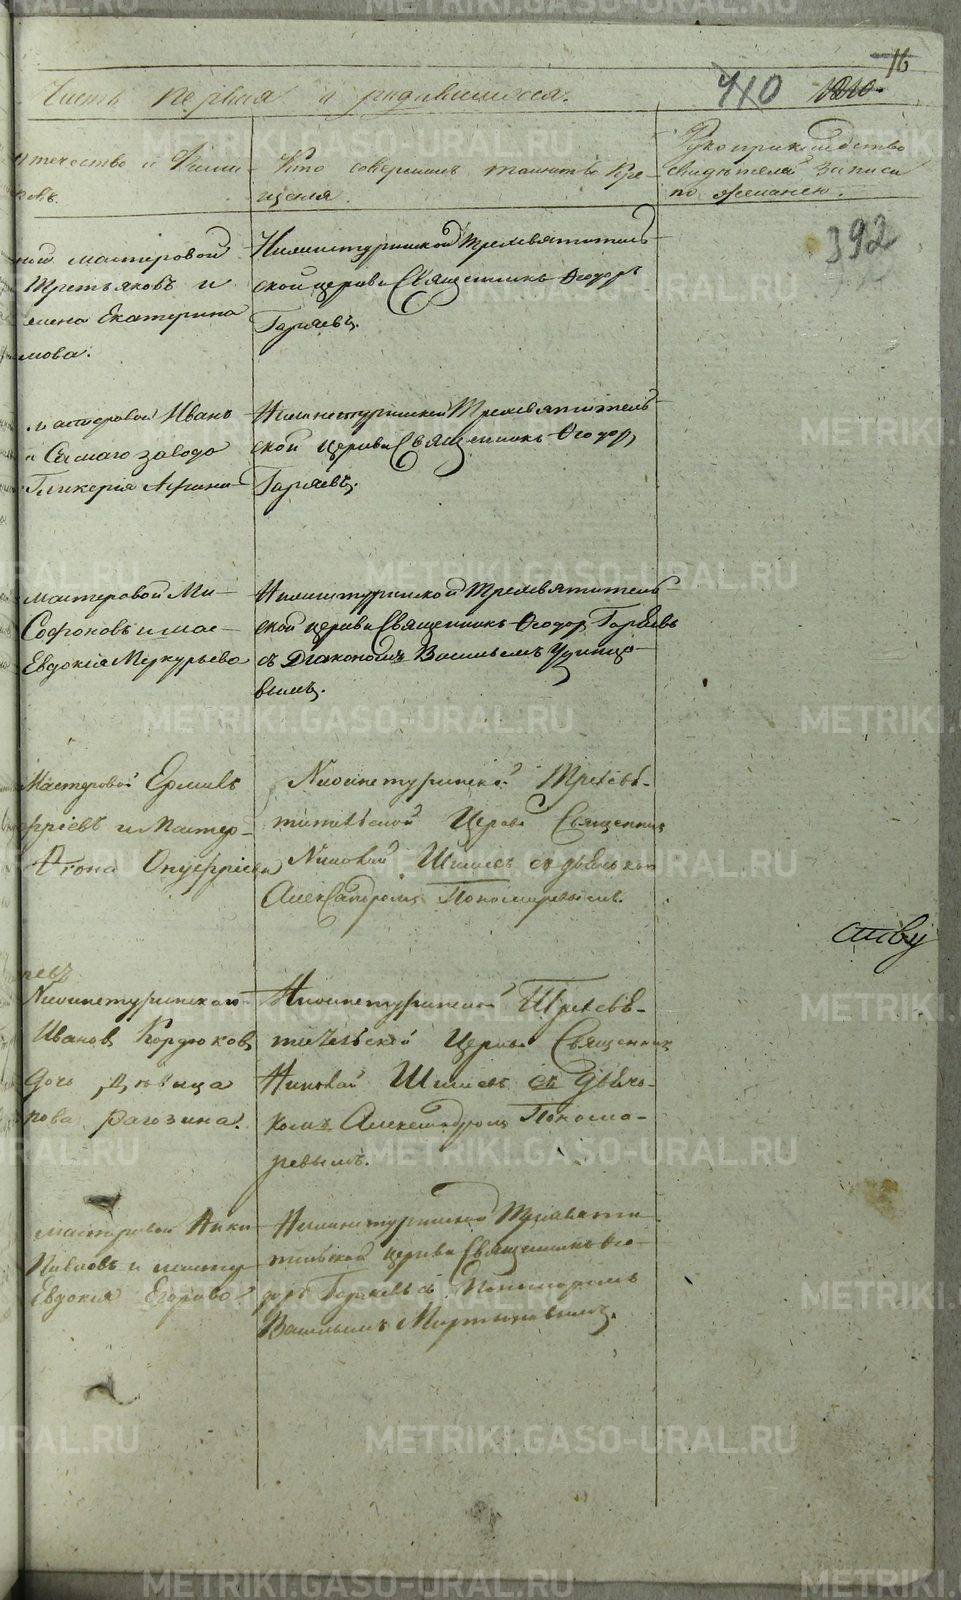 16
Часть первая о родившихся.
410 1210
отчество и Фами-
Кто совершалъ таинство Кре-
щенія.
Рукоприкладство
свидѣтелей записи
по желанію.
392
мастеровой
Третьяковъ и
жена Екатерина
мова.
Нижнетуринской Трехсвятитель-
ской церкви Священникъ Ѳеодоръ
Гаряевъ.
мастеровой Иванъ
и Самаго завода
Гликерія
Нижнетуринской Трехсвятитель-
ской церкви Священникъ Ѳеодоръ
Гаряевъ.
мастеровой Ми-
Софоновъ и мас-
Евдокія Меркурьева
Нижнетуринской Трехсвятитель-
ской церкви Священникъ Ѳеодоръ Гаряевъ
съ Діакономъ Васильемъ Удинцо-
вымъ.
Мастеровой Ермилъ
и Мастер-
Онуфріева
Нижнетуринской Трехсвя-
тительской Церкви Священникъ
Николай Шишевъ съ дьячкомъ
Александромъ Пономаревымъ.
ству
Нижнетуринскаго
Ивановъ Кордюковъ
дочь дѣвица
рова Рагозина.
Нижнетуринской Трехсвя-
тительской Церкви Священникъ
Николай Шишевъ съ Дьяч-
комъ Александромъ Понома-
ревымъ.
мастеровой Аники
Павловъ и мастер-
Евдокія Егорова.
Нижнетуринской Трехсвяти-
тельской церкви Священникъ Ѳео-
доръ Гаряевъ съ Пономаремъ
Васильемъ Мартыновымъ.
METRIKI.GASO-URAL.RU